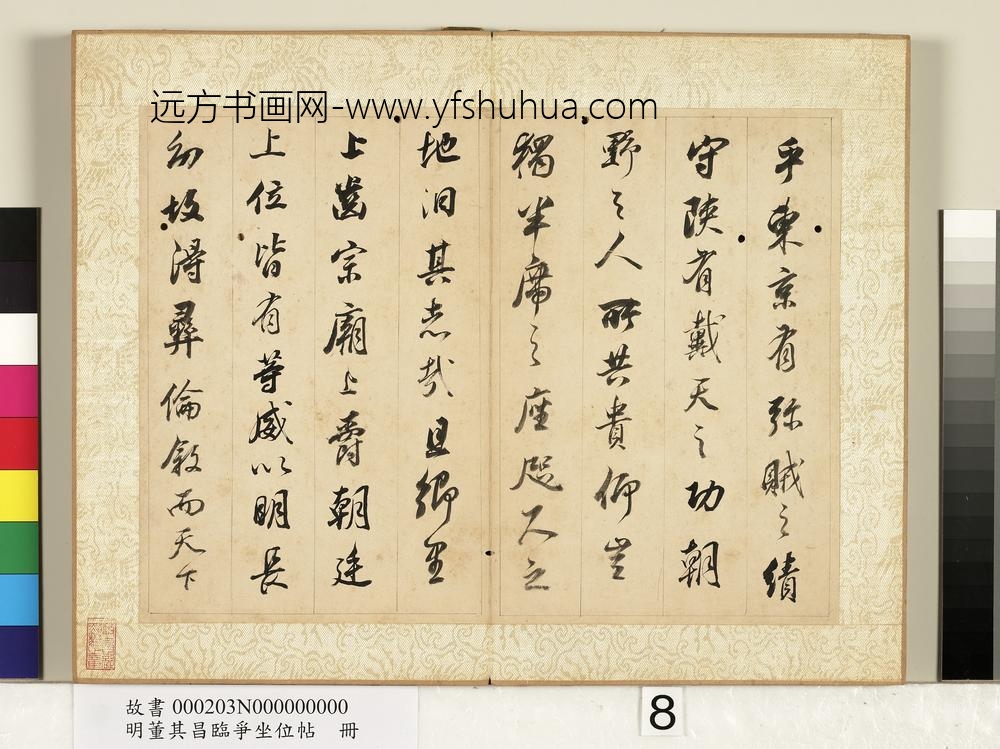 远方书画网-www.yfshuhua.com
平東京有殄賊之績
守陝有戴天之功朝
野之人所共貴仰豈
獨半席之座咫尺之
地汩其志哉且鄉里
上齒宗廟上爵朝廷
上位皆有等威以明長
幼故得彝倫敘而天下
故書 000203N000000000
明董其昌臨爭坐位帖 冊
8